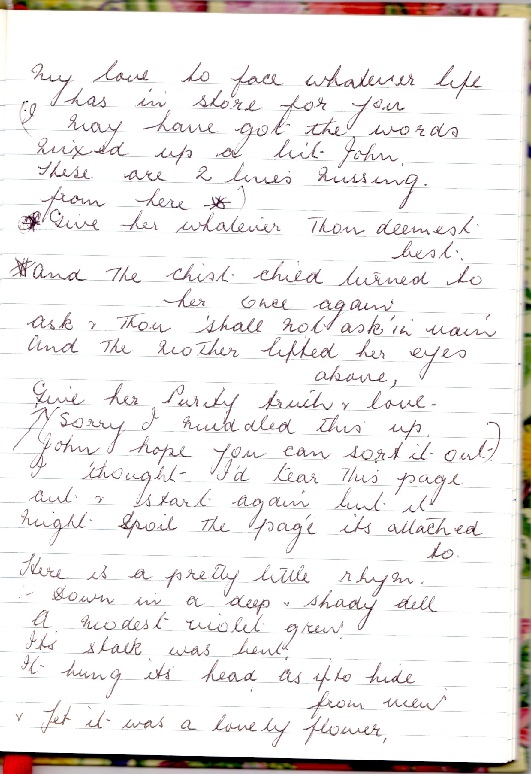 My love to face whatever life
has in store for you
(I may have got the words
mixed up a bit John,
These are 2 lines missing.
from here *)
* Give her whatever Thou deemest
best.
* And The chist chied turned to
her once again
ask & Thou 'shall not ask in vain
And The Mother lifted her eyes
above,
Give her Purity truth & love.
(Sorry I muddled this up
John I hope you can sort it out)
I thought I'd tear This page
out & start again but it
might spoil The page its attached
to.
Here is a pretty little rhym.
Down in a deep & shady dell
A modest violet grew.
Its stalk was bent.
It hung its head as if to hide
from view
& Yet it was a lovely flower,